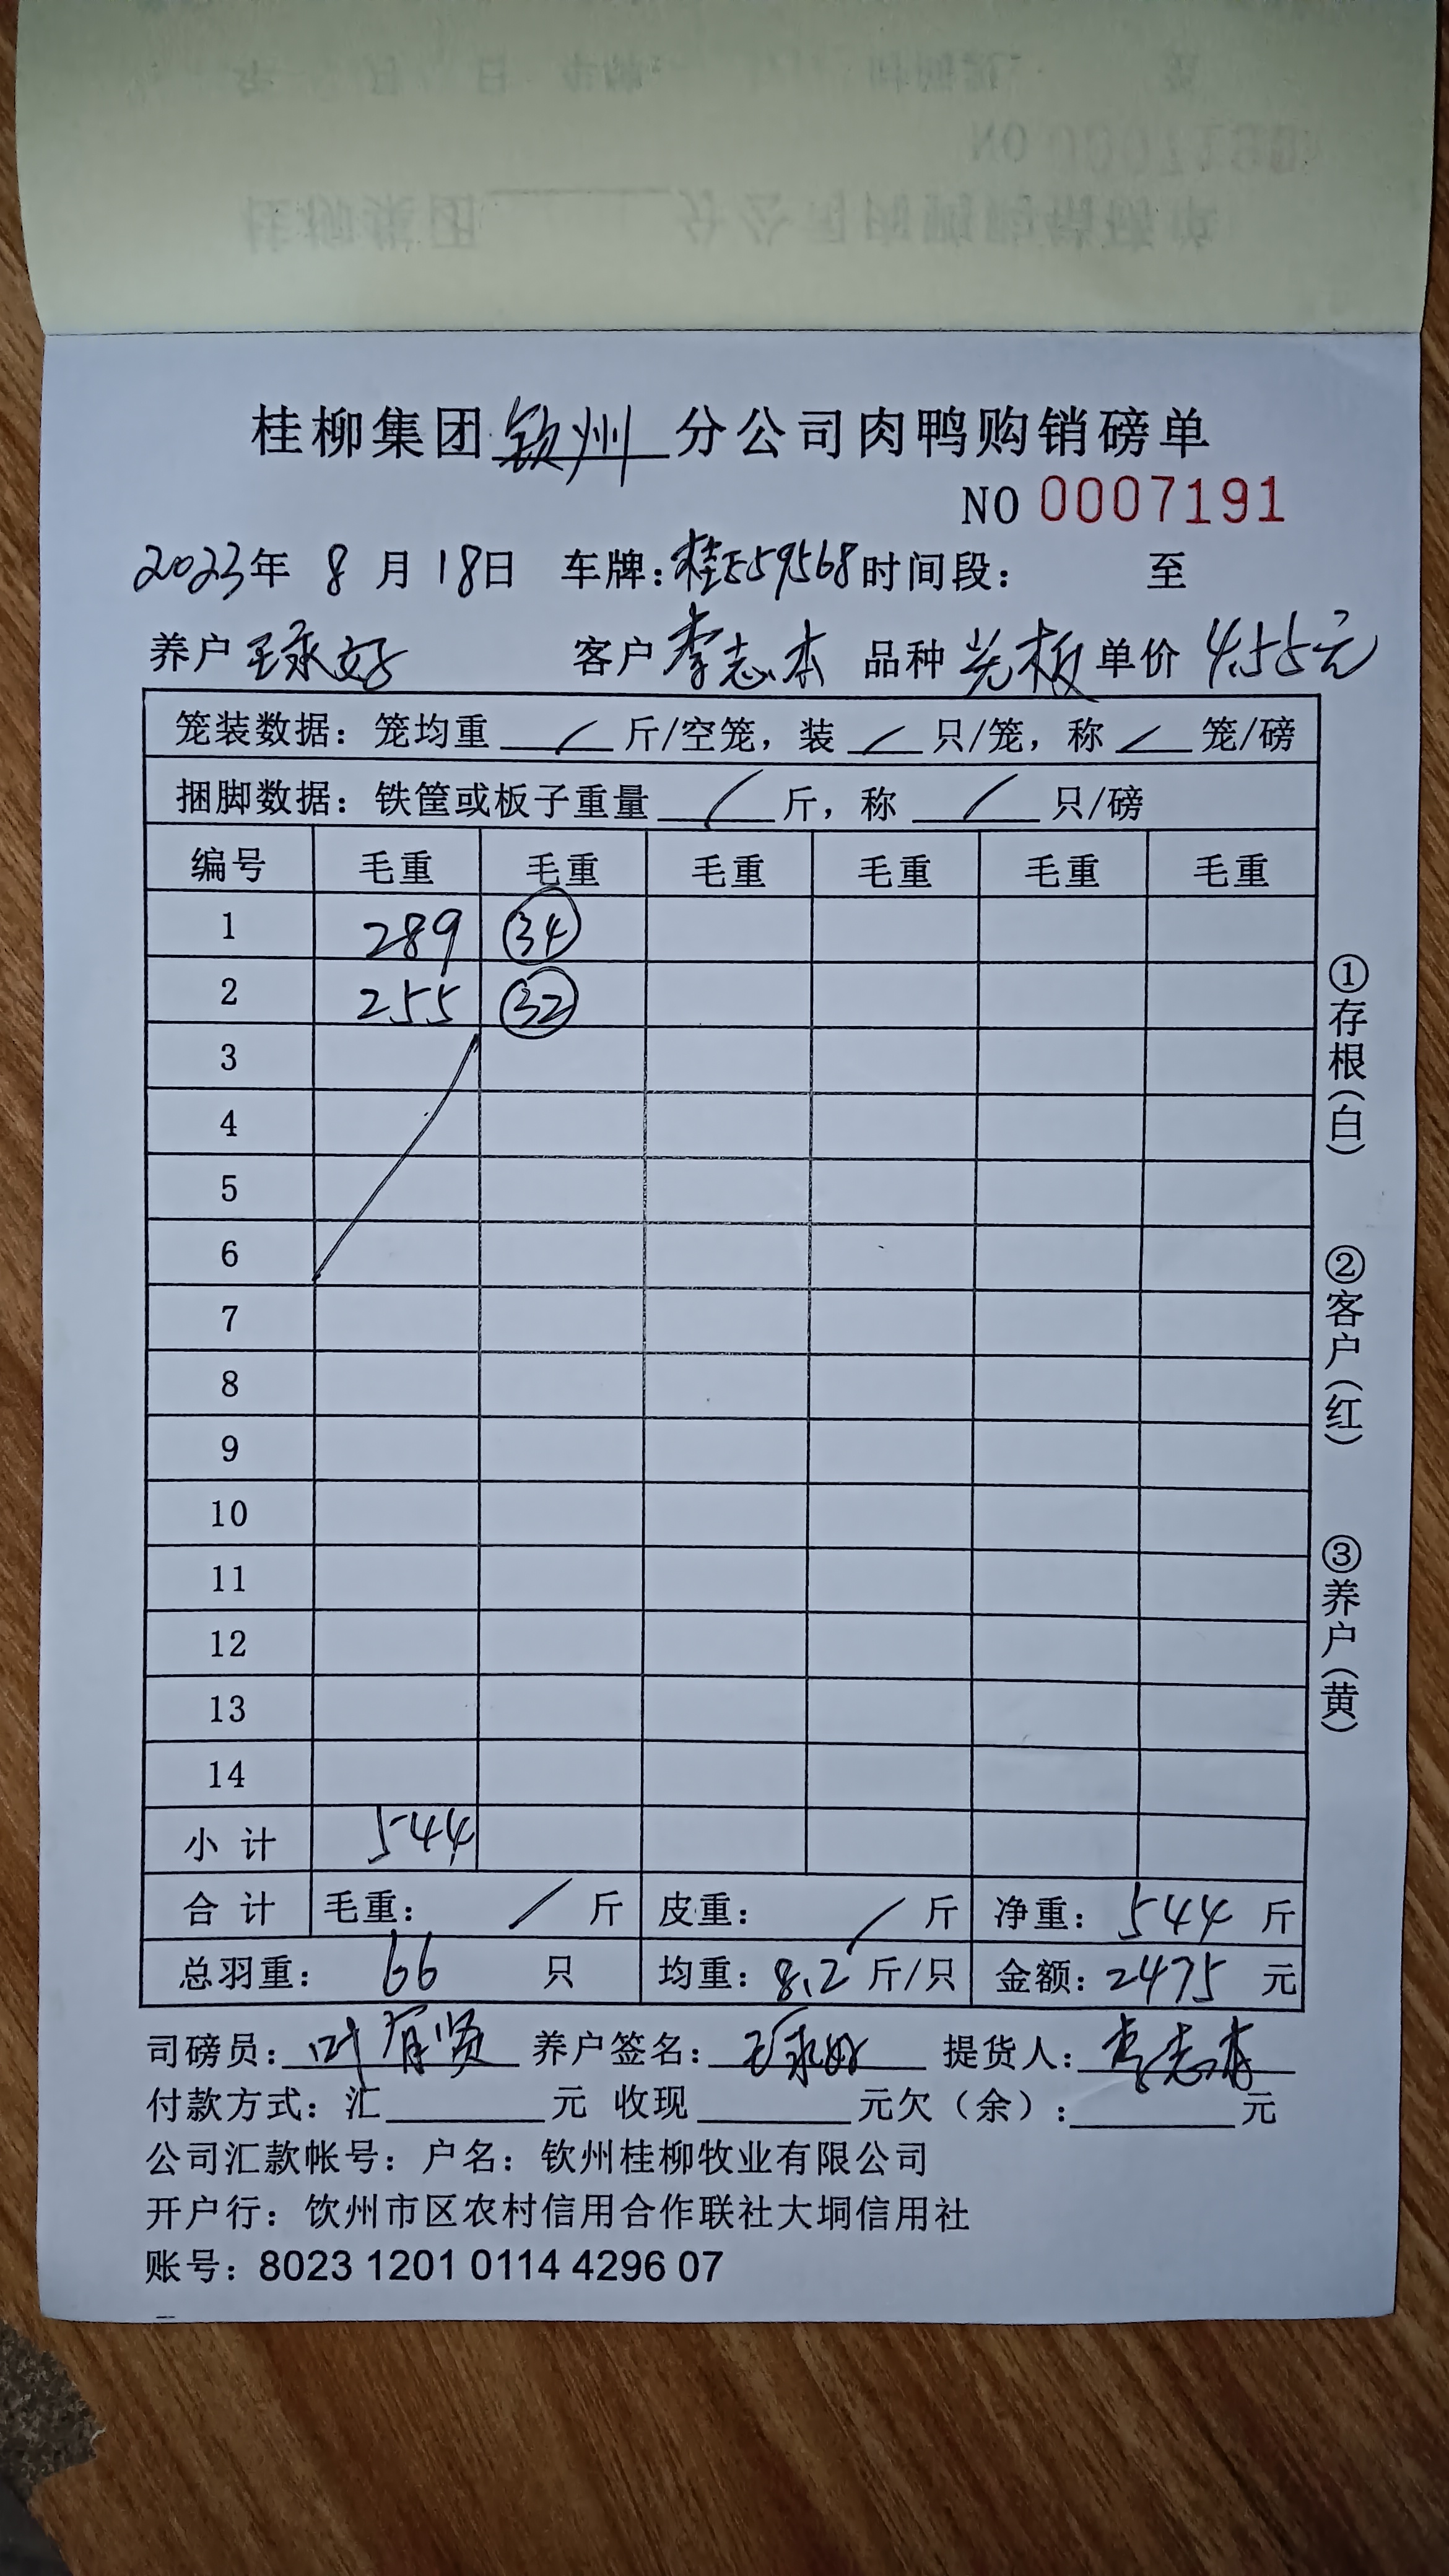 桂柳集团 钦州 分公司肉鸭购销磅单
NO 0007191
2023年 8 月 18日 车牌:桂E59568 时间段: 至
养户 王永好 客户 李志本 品种 光板 单价 4.55元
笼装数据: 笼均重 / 斤/空笼, 装 / 只/笼, 称 / 笼/磅
捆脚数据: 铁筐或板子重量 / 斤, 称 / 只/磅
编号 毛重 毛重 毛重 毛重 毛重 毛重
1 289 34
2 255 32
3
4
5
6
7
8
9
10
11
12
13
14
小计 544
合计 毛重: / 斤 皮重: / 斤 净重: 544 斤
总羽重: 66 只 均重: 8.2 斤/只 金额: 2475 元
司磅员: 叶有贤 养户签名: 王永好 提货人: 李志本
付款方式: 汇 元 收现 元欠(余): 元
公司汇款帐号: 户名: 钦州桂柳牧业有限公司
开户行: 饮州市区农村信用合作联社大垌信用社
账号: 8023 1201 0114 4296 07
①存根(白)
②客户(红)
③养户(黄)